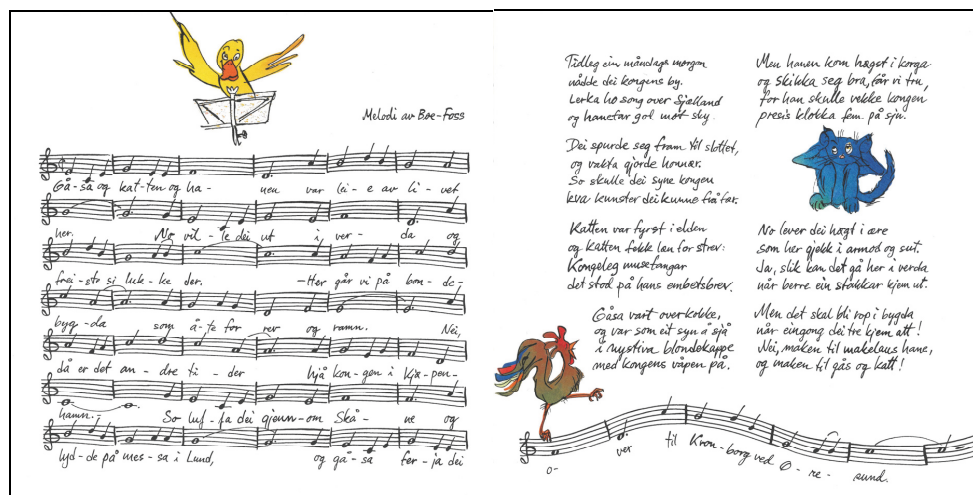 Melodi av Bøe-Foss
Gå-sa og kat-ten og ha- nen var lei-e av li-vet
her. No vil-te dei ut i ver-da og
frei-ste si luk-ke der. -Her går vi på bon-de-
byg-da som å-te for rev og ramn. Nei,
då er det an-dre ti-der hjå kon-gen i Kjø-pen-
hamn.- So luf-fa dei gjenn-om Skå-ne og
lyd-de på mes-sa i Lund, og gå-sa fer-ja dei
o- ver til Kron-borg ved Ø-re-sund.
Tidleg ein måndags morgon
nådde dei kongens by.
Lerka ho song over Sjælland
og hanefar gol mot sky.
Dei spurde seg fram til slottet,
og vakta gjorde honnør.
So skulle dei syne kongen
kva kunster dei kunne frå før.
Katten var fyrst i elden
og katten fekk løn for strev:
Kongeleg musefangar
det stod på hans embetsbrev.
Gåsa vart overkokke,
og var som eit syn å sjå
i nystiva blondekappe
med kongens våpen på.
Men hanen kom høgst i korga
og skikka seg bra, får vi tru,
for han skulle vekke kongen
presis klokka fem på sju.
No lever dei høgt i ære
som her gjekk i armod og sut.
Ja, slik kan det gå her i verda
når berre ein stakkar kjem ut.
Men det skal bli rop i bygda
når eingong dei tre kjem att!
Nei, maken til makelaus hane,
og maken til gås og katt!